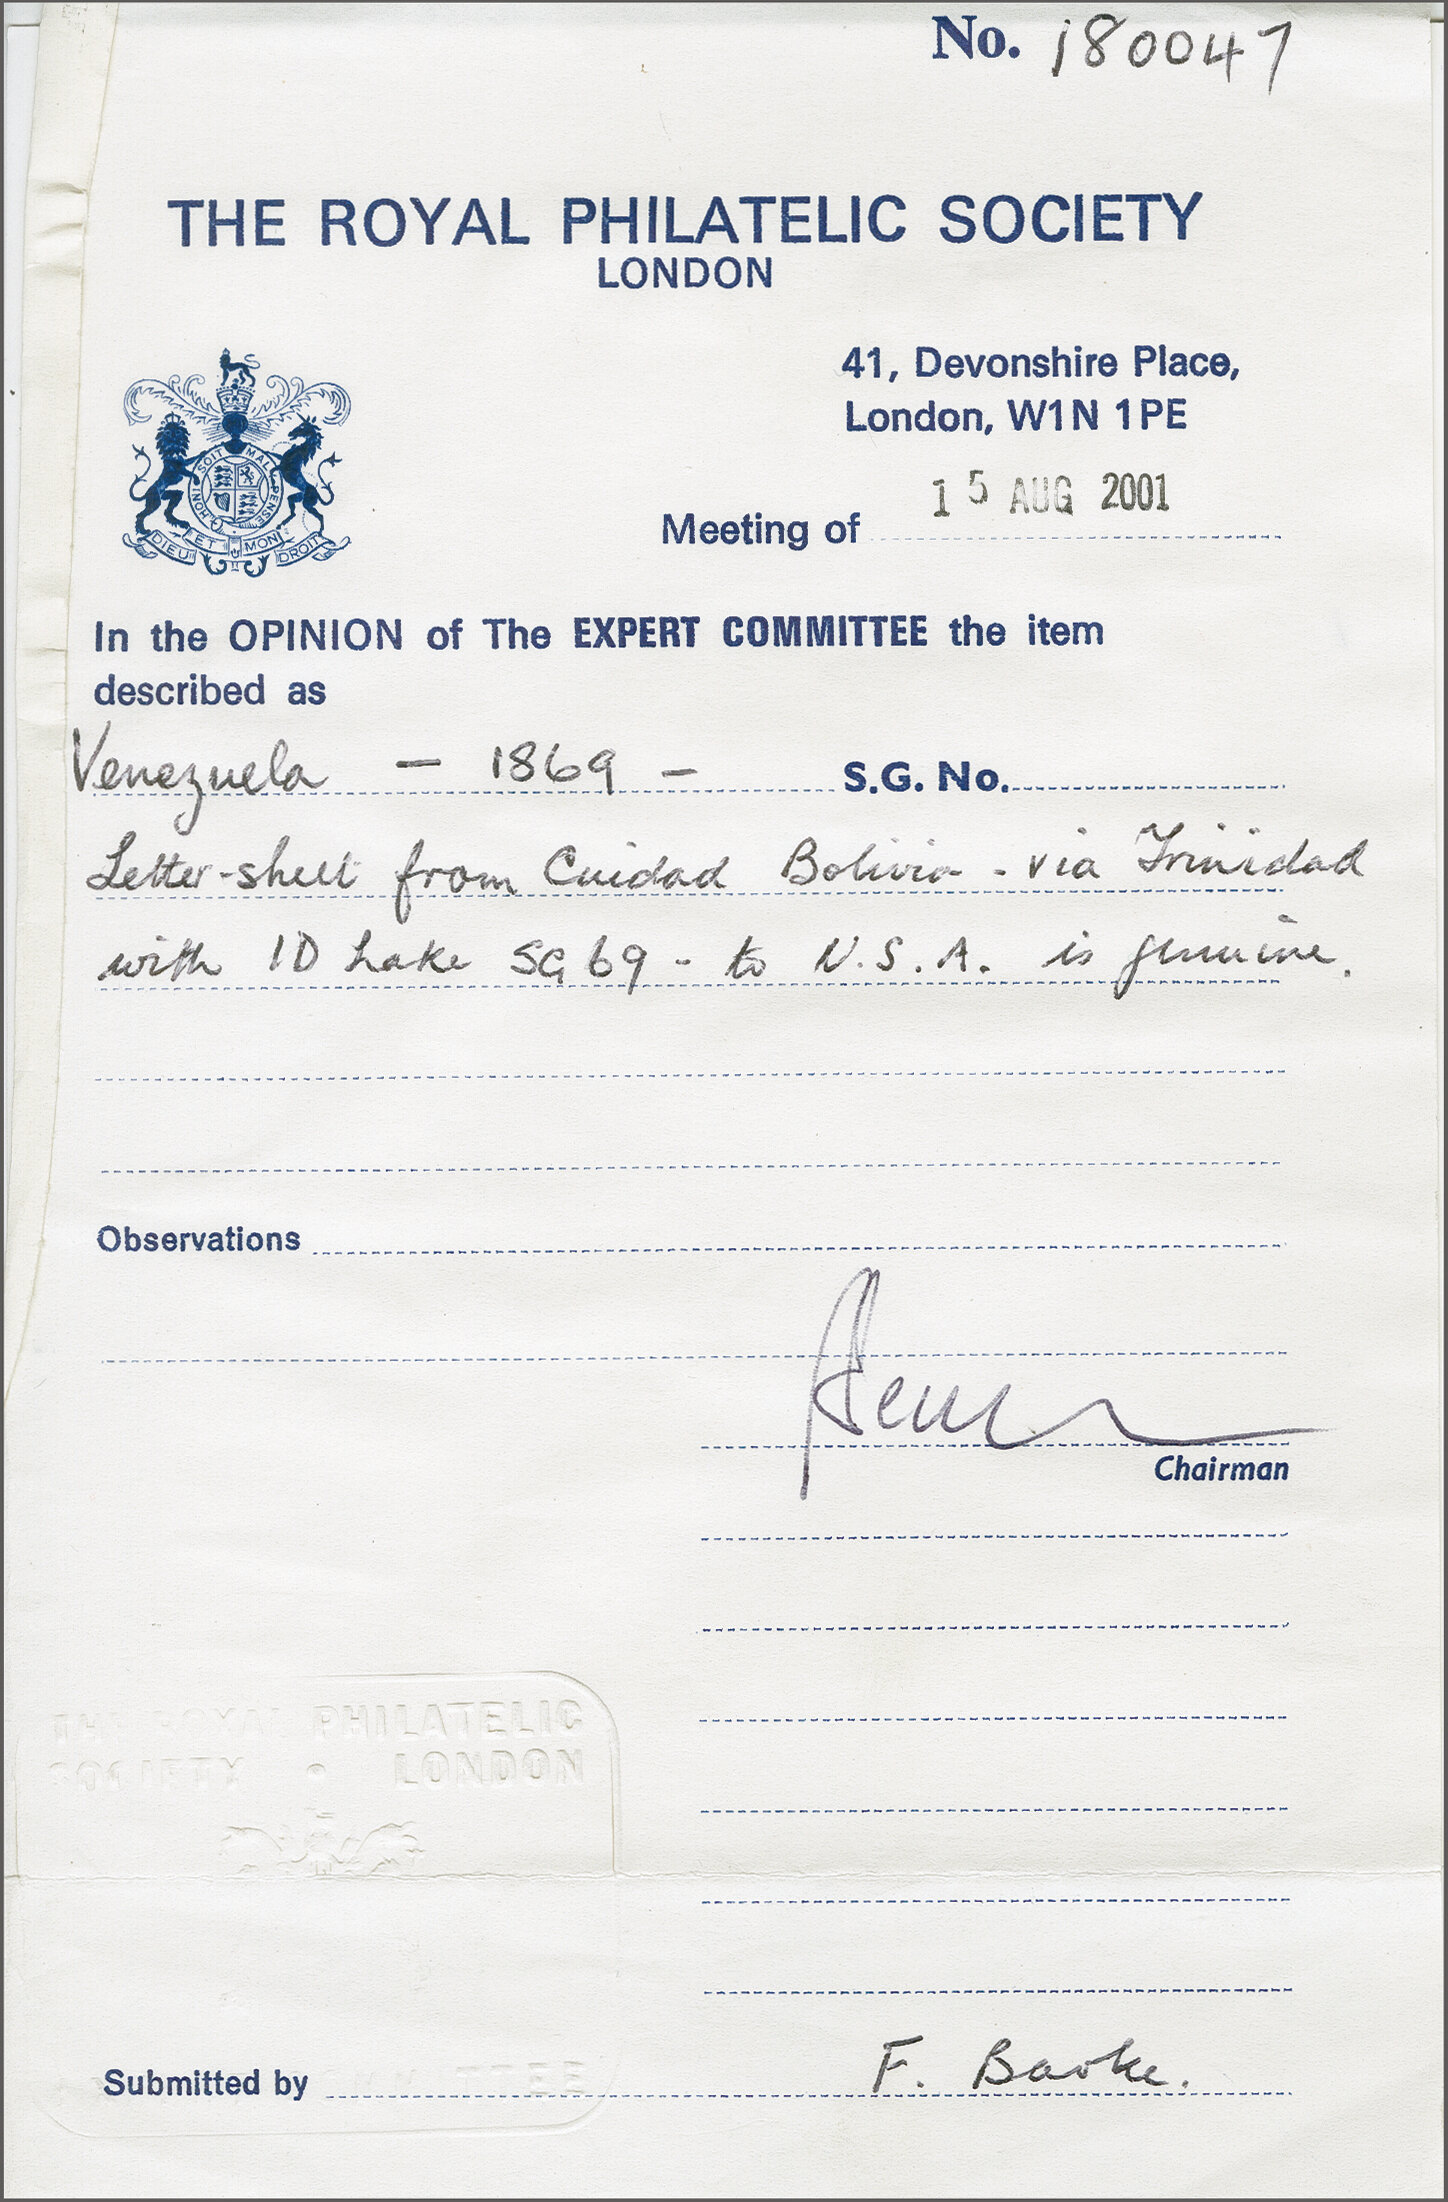 No. 180047
THE ROYAL PHILATELIC SOCIETY
LONDON
41, Devonshire Place,
London, W1N 1PE
HONI SOIT MAL PENSE
DIEU ET MON DROIT
15 AUG 2001
Meeting of
In the OPINION of The EXPERT COMMITTEE the item
described as
Venezuela - 1869 - S.G. No.
Letter-sheet from Cuidad Bolivia - via Trinidad
with 1D Lake SG 69 - to U.S.A. is genuine.
Observations
Chairman
THE ROYAL PHILATELIC
SOCIETY • LONDON
Submitted by F. Barke.